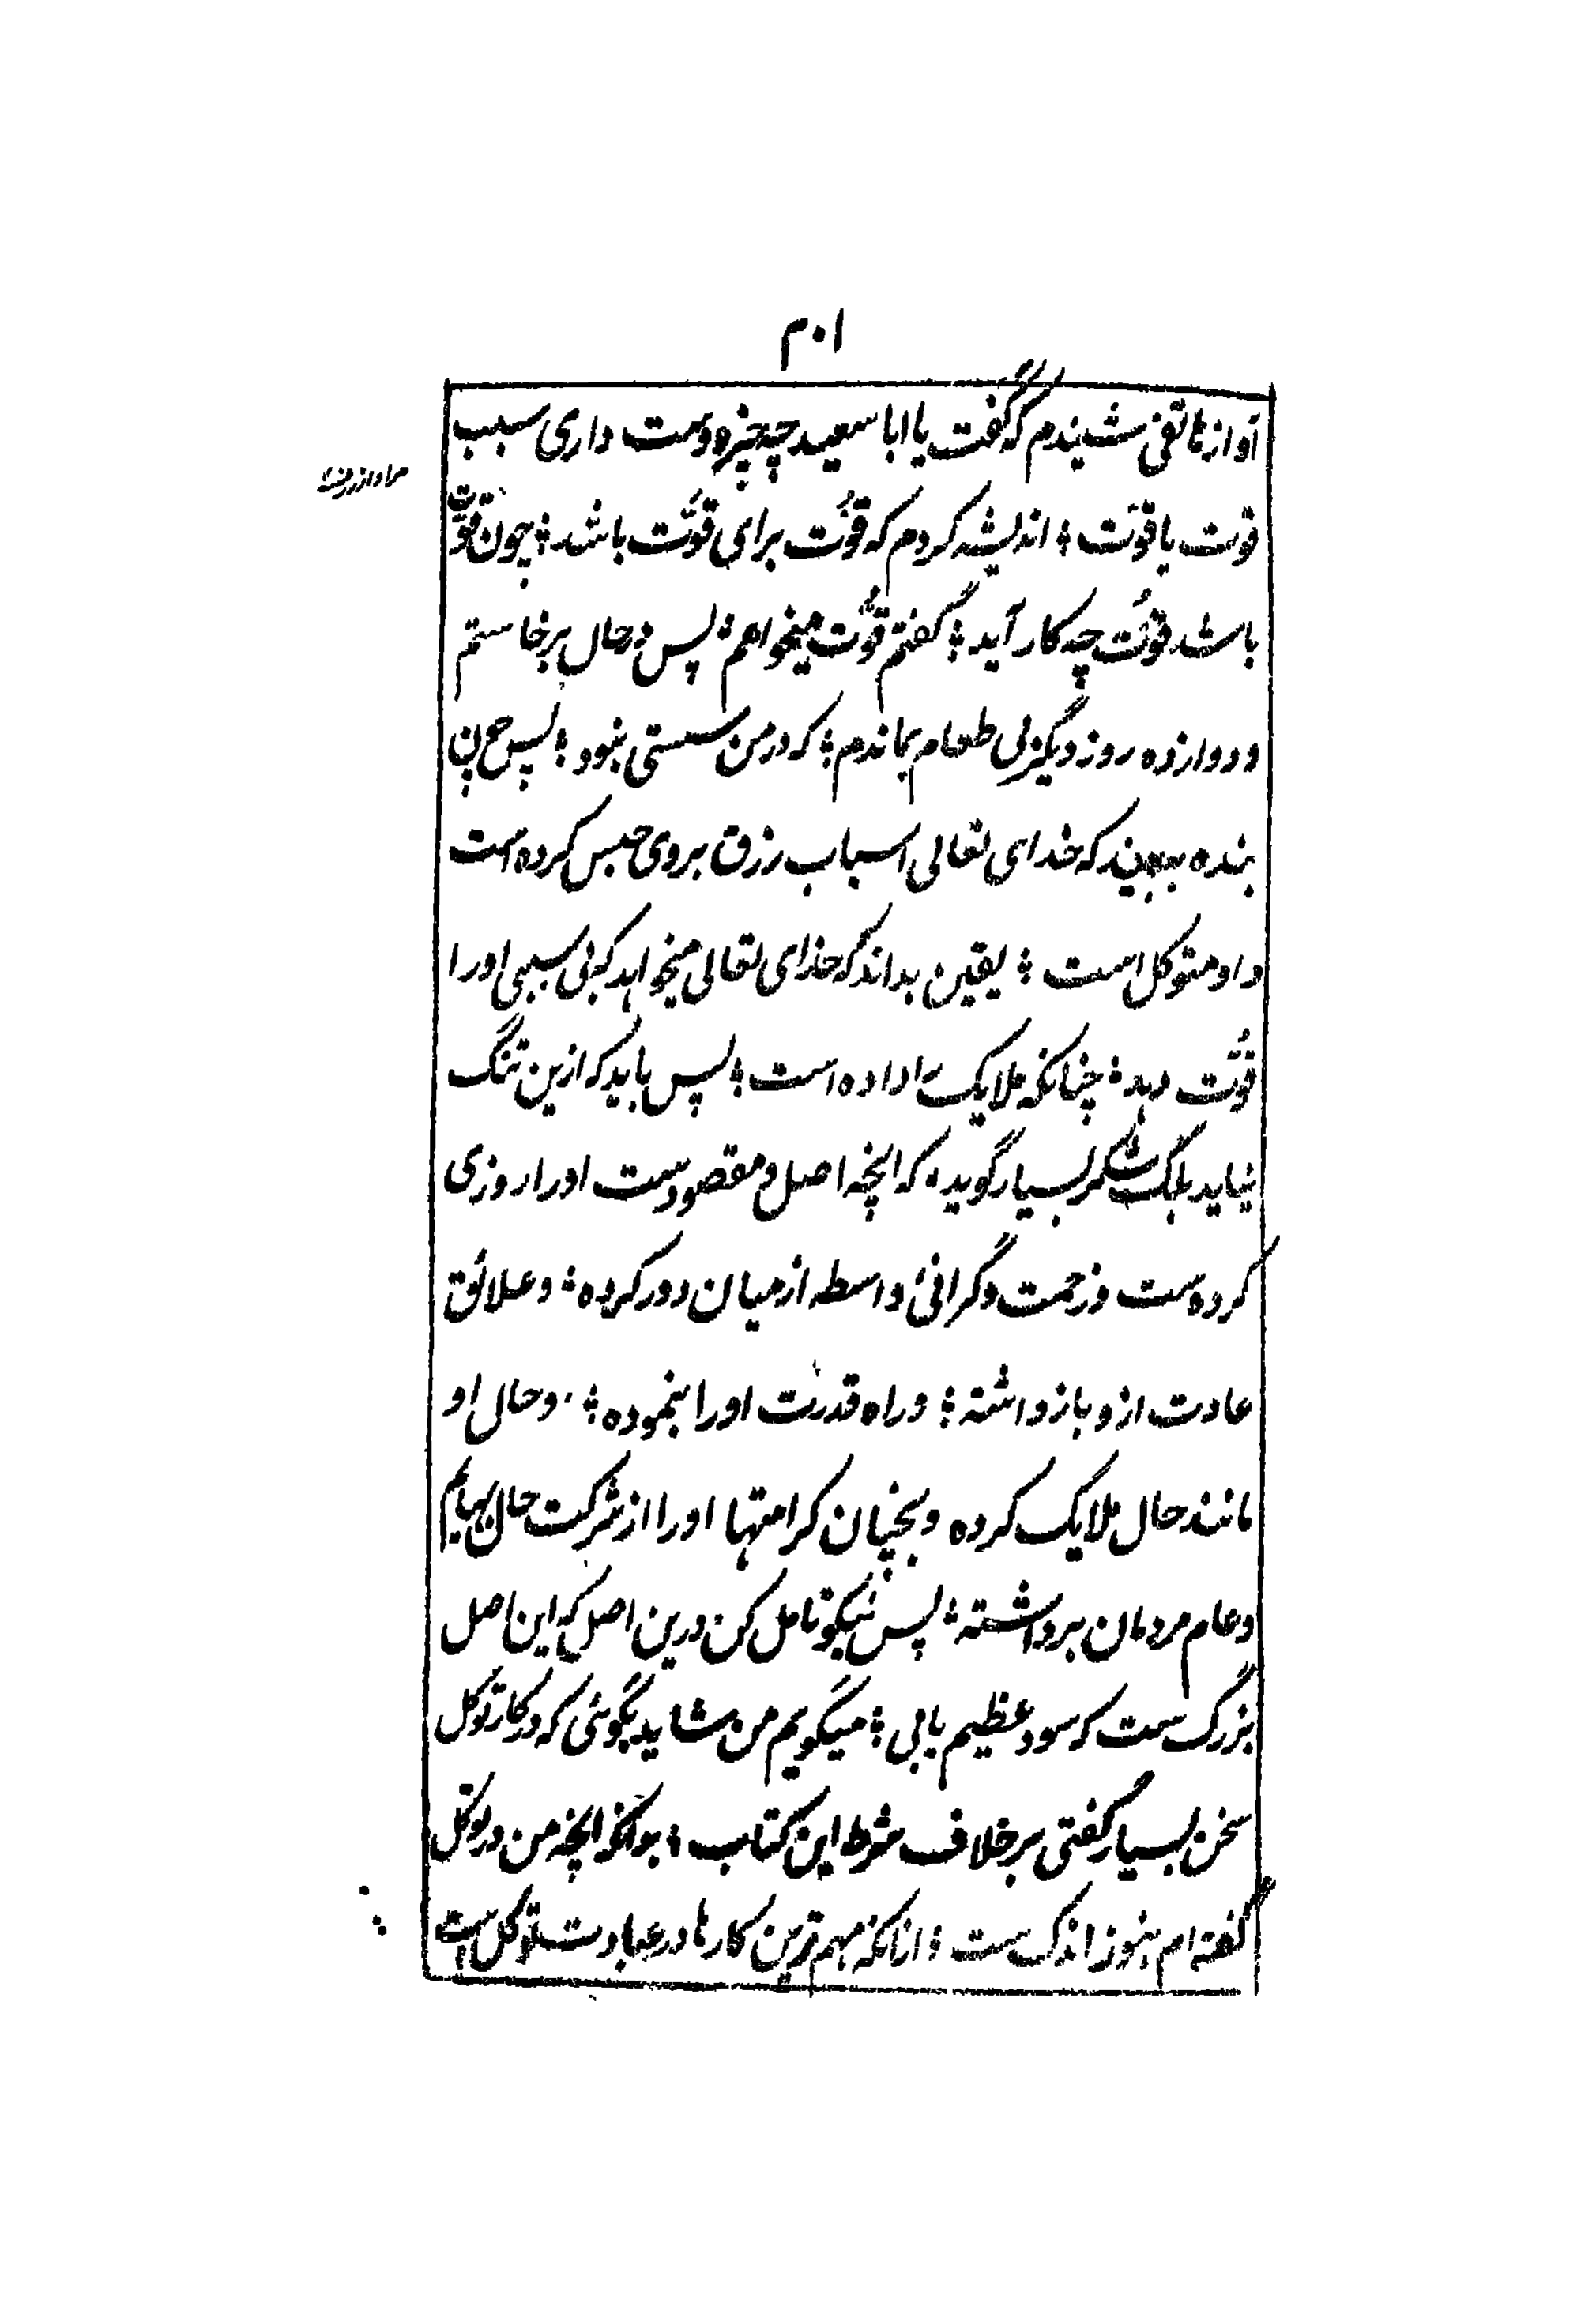 ۴۰۱
آواز هاتفی شنیدم که گفت یا ابا سعید چه چیز دوست داری سبب
قوت یا قوّت ؛ اندیشه کردم که قوُت برای قوّت باشد ؛ چون قوّت
باشد قوُت چه کار آید ؛ گفتم قوّت میخواهم ؛ پس درحال برخاستم
و دوازده روز دیگر بی طعام بماندم ؛ که در من سستی نبود ؛ پس چون
بنده ببیند که خدای تعالی اسباب رزق بروی حبس کرده است
و او متوکل است ؛ یقین بداند که خدای تعالی میخواهد که بی سببی او را
قوّت دهد ؛ چنانکه ملایک را داده است ؛ پس باید که ازین تنگ
نیاید بلکه شکر بسیار گوید ، که آنچه اصل و مقصودست او را روزی
کرده ست و زحمت و گرانیٔ واسطه از میان دور کرده ؛ و علائق
عادت ازو باز داشته ؛ و راه قدرت او را بنموده ؛ و حال او
مانند حال ملایک کرده و بچنان کرامتها او را از شرکت حال بهایم
و عام مردمان برداشته ؛ پس نیکو تامل کن درین اصل که این اصل
بزرگ ست که سود عظیم یابی ؛ میگویم من شاید بگوئی که در کار توکل
سخن بسیار گفتی برخلاف شرط این کتاب ؛ بدانکه آنچه من در توکل
گفته ام هنوز اندک ست ؛ ازانکه مهم ترین کارها در عبادت توکل است